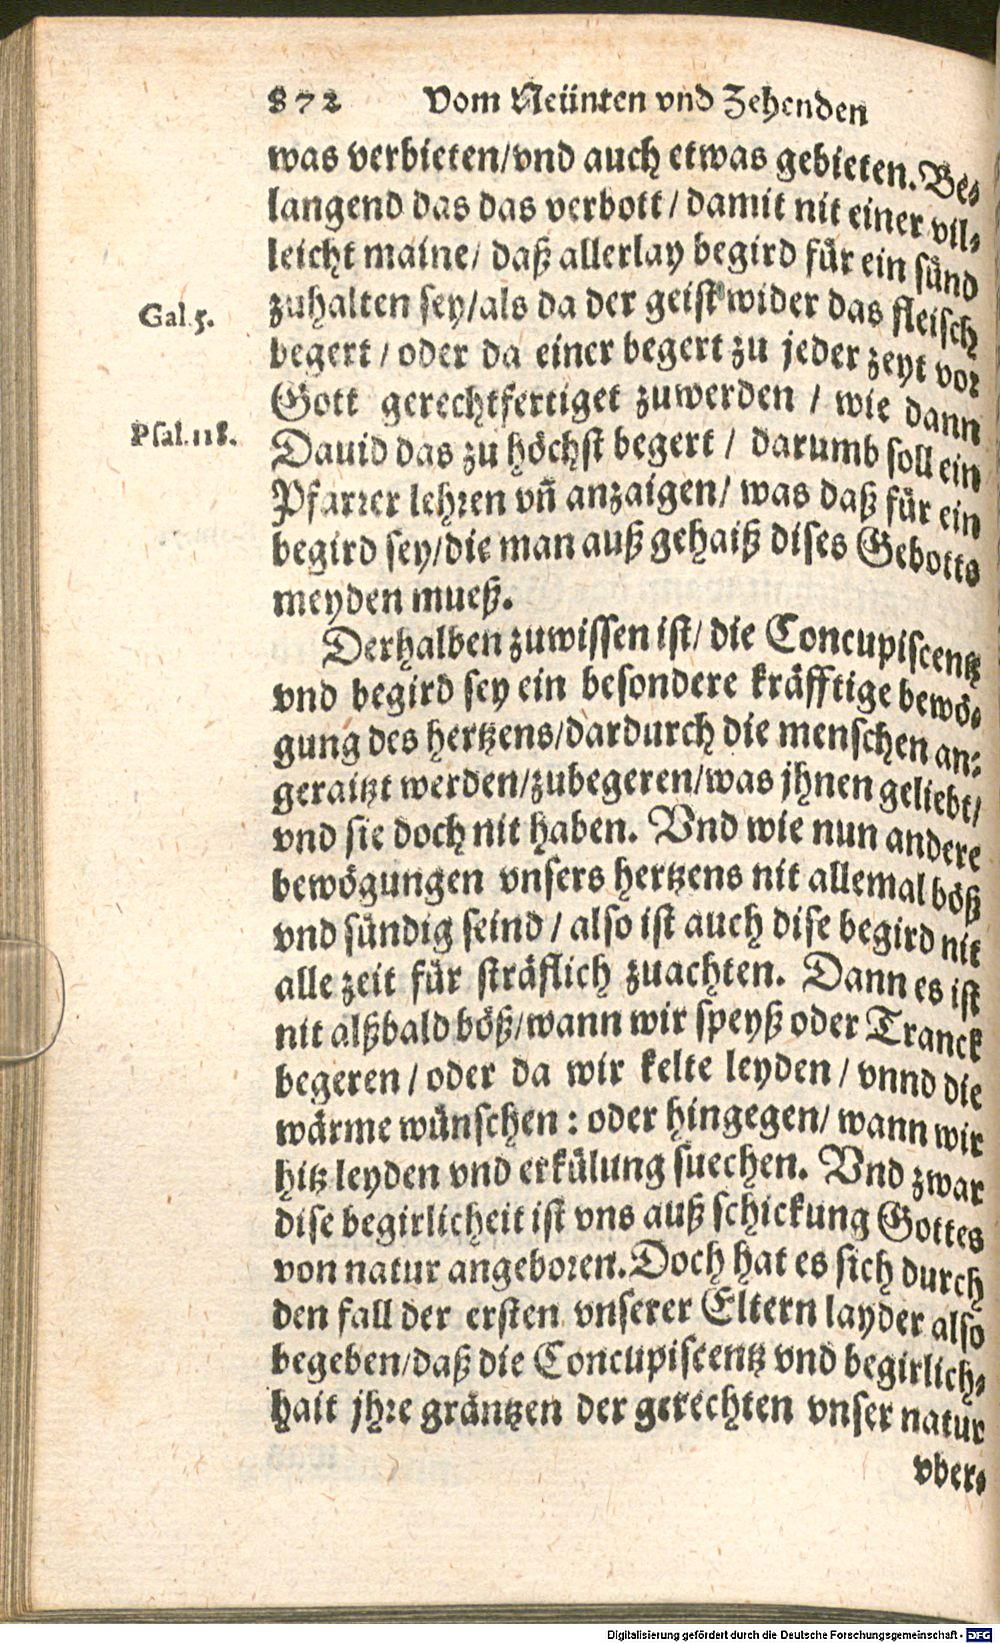 872 Vom Neünten vnd Zehenden
was verbieten/vnd auch etwas gebieten. Be-
langend das das verbott/ damit nit einer vil-
leicht maine/ daß allerlay begird für ein sünd
zuhalten sey/als da der geist wider das fleisch
Gal. 5.
begert/oder da einer begert zu jeder zeyt vor
Gott gerechtfertiget zuwerden / wie dann
Psal. 118.
Dauid das zu höchst begert / darumb soll ein
Pfarrer lehren vñ anzaigen/ was daß für ein
begird sey/die man auß gehaiß dises Gebotts
meyden mueß.
Derhalben zuwissen ist/ die Concupiscentz
vnd begird sey ein besondere kräfftige bewö-
gung des hertzens/dardurch die menschen an-
geraitzt werden/zubegeren/was jhnen geliebt/
vnd sie doch nit haben. Vnd wie nun andere
bewögungen vnsers hertzens nit allemal böß
vnd sündig seind / also ist auch dise begird nit
alle zeit für sträflich zuachten. Dann es ist
nit alßbald böß/wann wir speyß oder Tranck
begeren / oder da wir kelte leyden / vnnd die
wärme wünschen : oder hingegen/ wann wir
hitz leyden vnd erkülung suechen. Vnd zwar
dise begirlicheit ist vns auß schickung Gottes
von natur angeboren. Doch hat es sich durch
den fall der ersten vnserer Eltern layder also
begeben/daß die Concupiscentz vnd begirlich-
hait jhre gräntzen der gerechten vnser natur
vber-
Digitalisierung gefördert durch die Deutsche Forschungsgemeinschaft - DFG